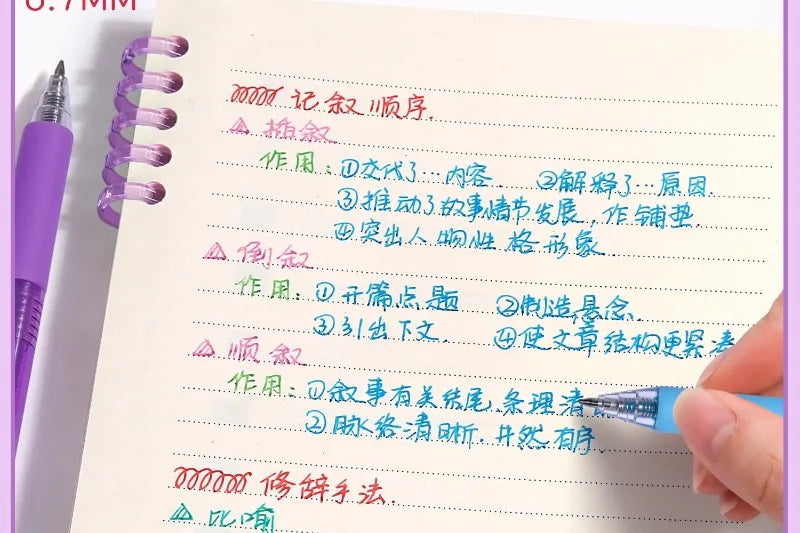 0.7MM
记叙顺序.
插叙
作用：①交代了…内容. ②解释了…原因.
③推动了故事情节发展，作铺垫.
④突出人物性格形象.
倒叙
作用：①开篇点题 ②制造悬念.
③引出下文. ④使文章结构更紧凑
顺叙
作用：①叙事有关结尾.条理清
②脉络清晰.井然有序.
修辞手法.
比喻